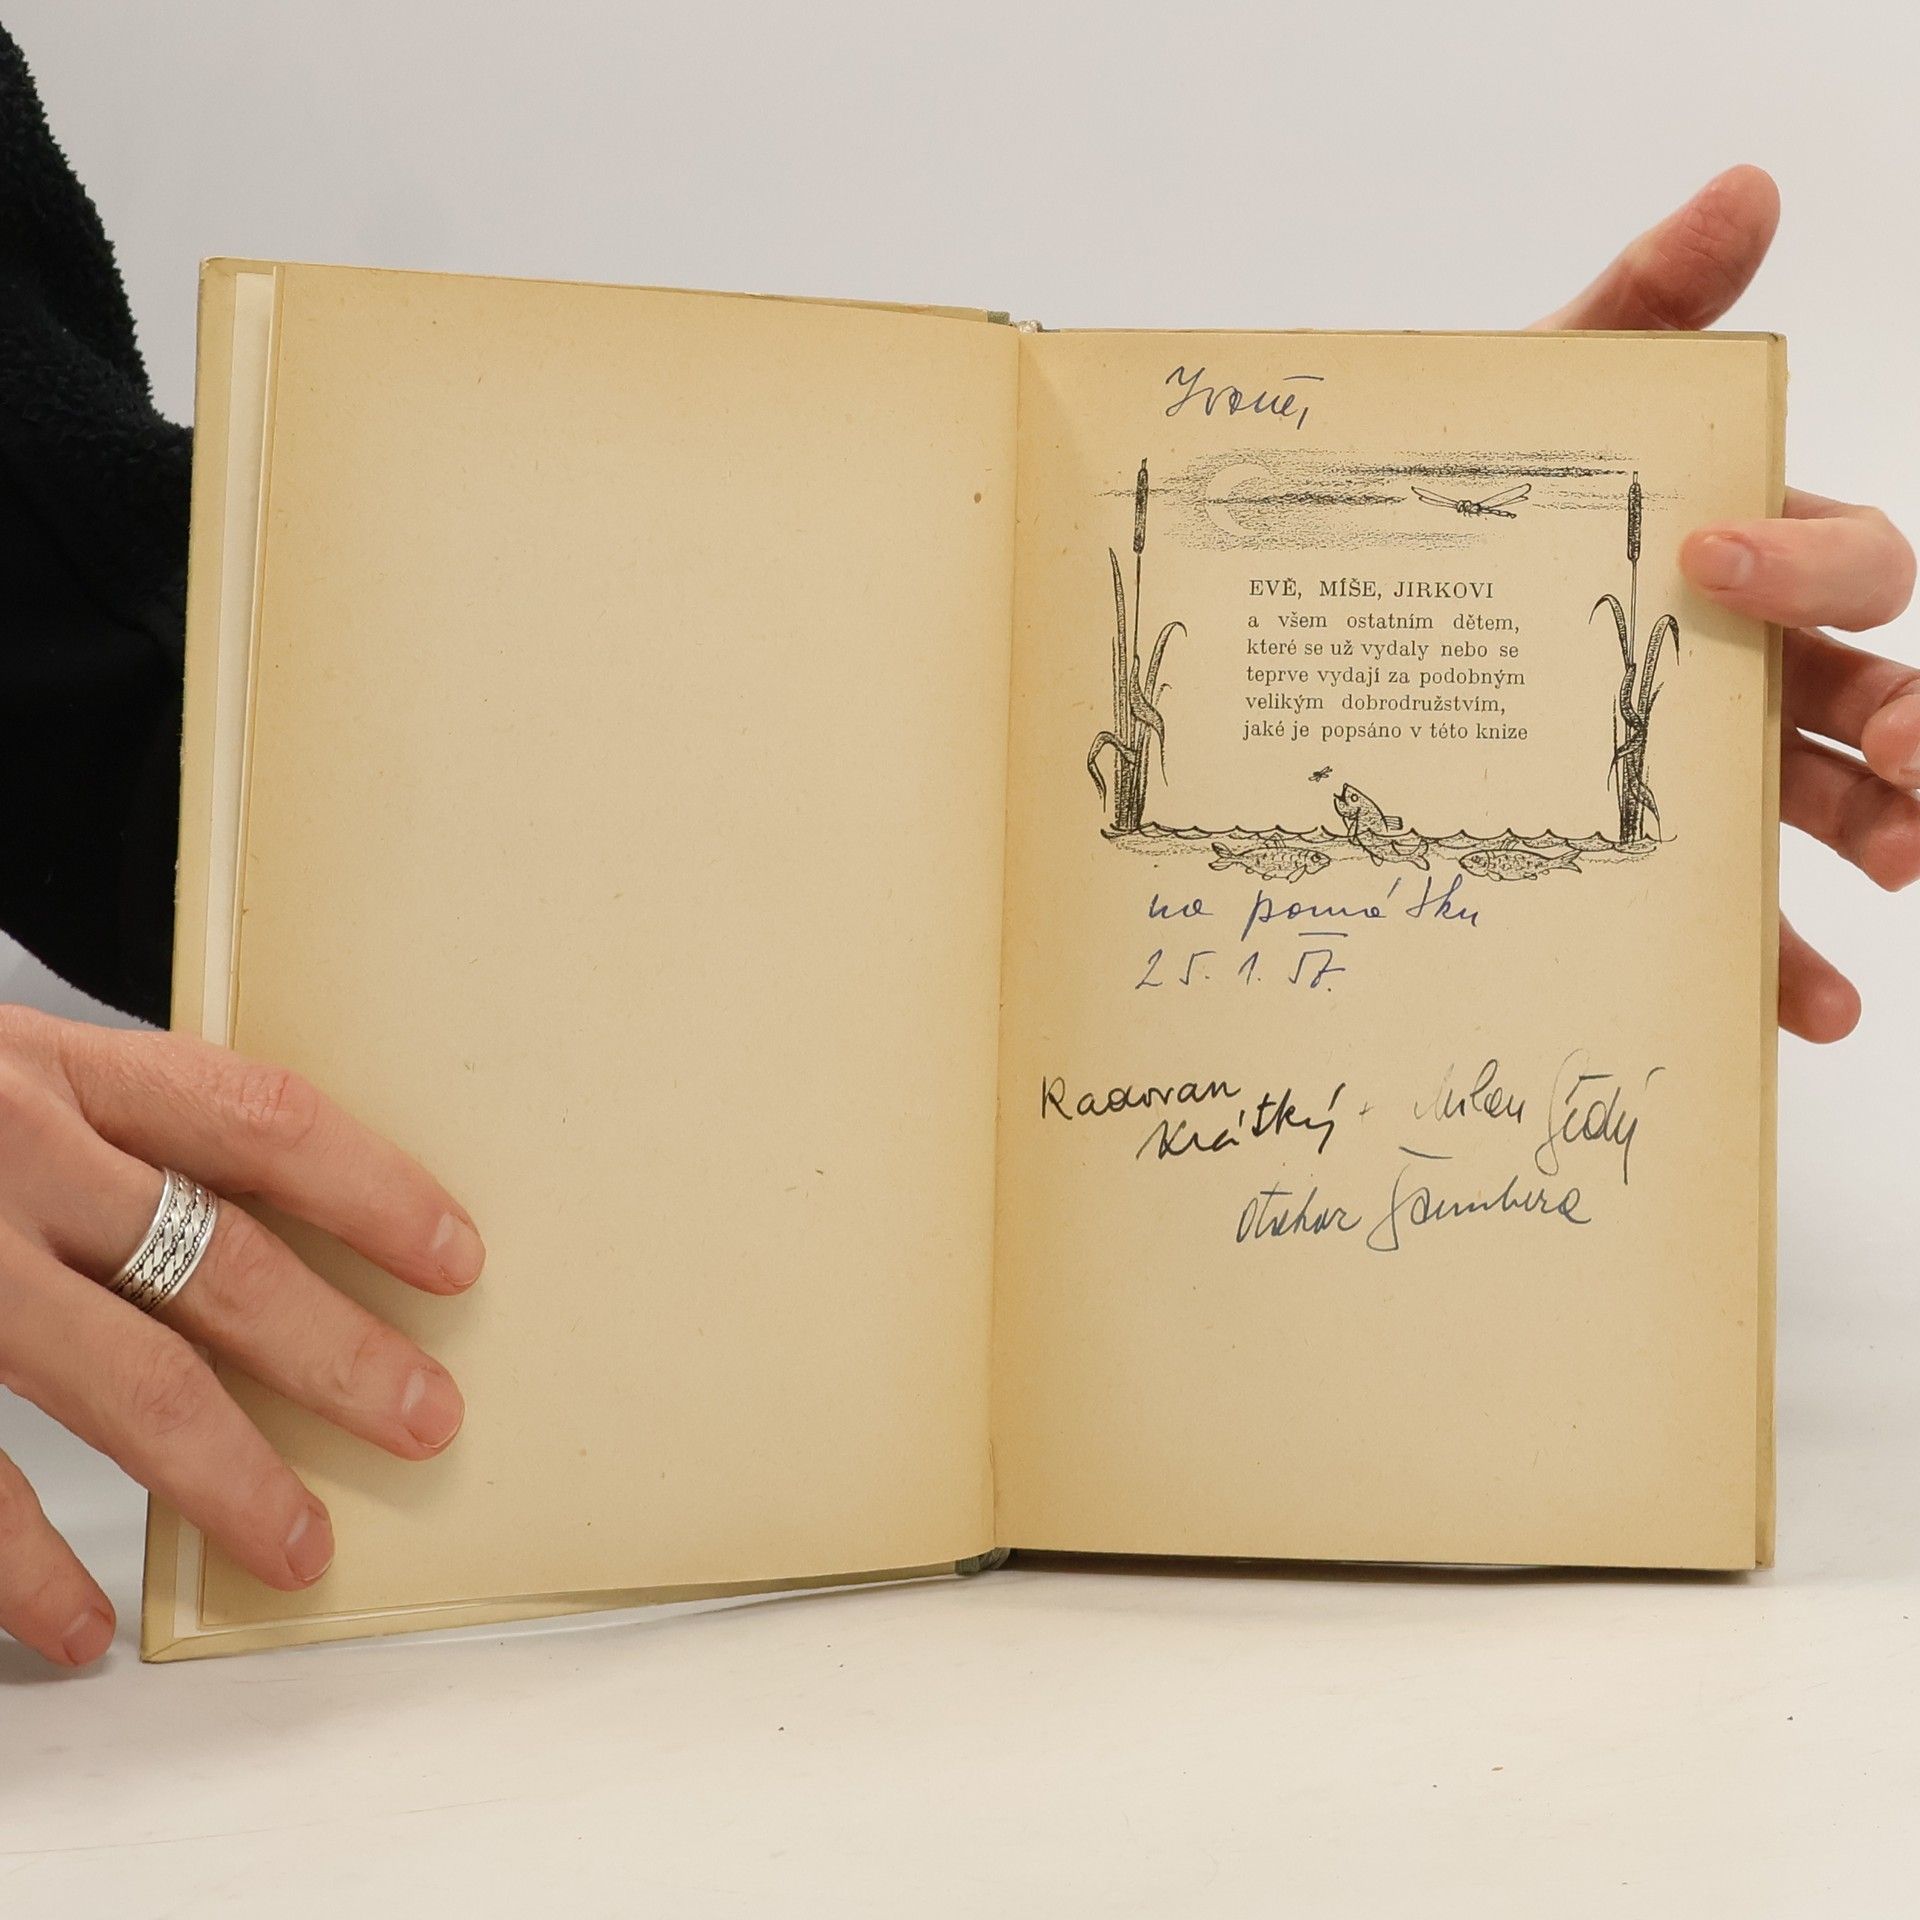 EVĚ, MÍŠE, JIRKOVI
a všem ostatním dětem,
které se už vydaly nebo se
teprve vydají za podobným
velikým dobrodružstvím,
jaké je popsáno v této knize
na památku
25. 1. 57.
Radovan
Krátký + Milan Šedý
Otakar Šambera